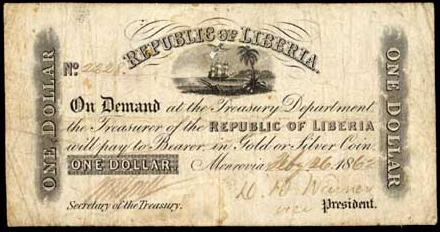 REPUBLIC OF LIBERIA.
No. 2228
On Demand at the Treasury Department
the Treasurer of the REPUBLIC OF LIBERIA
will pay to Bearer, in Gold or Silver Coin,
ONE DOLLAR Monrovia Feby 26 1862
D. B. Warner
Secretary of the Treasury. vice President.
ONE DOLLAR
ONE DOLLAR